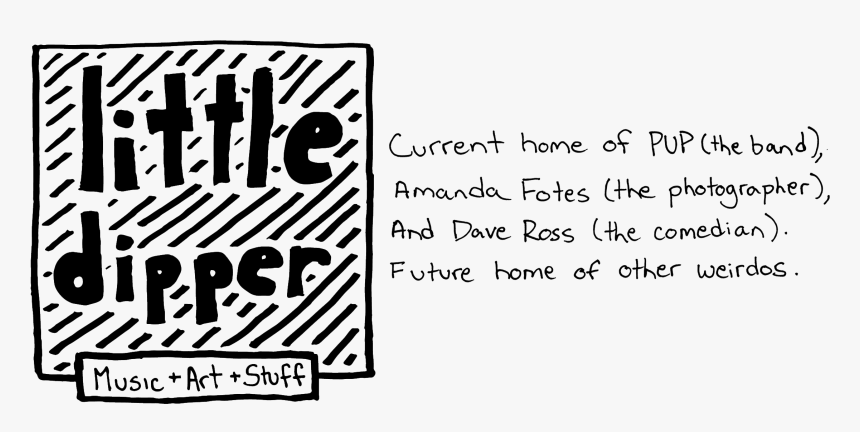 little
dipper
Music + Art + Stuff
Current home of PUP (the band),
Amanda Fotes (the photographer),
And Dave Ross (the comedian).
Future home of other weirdos.